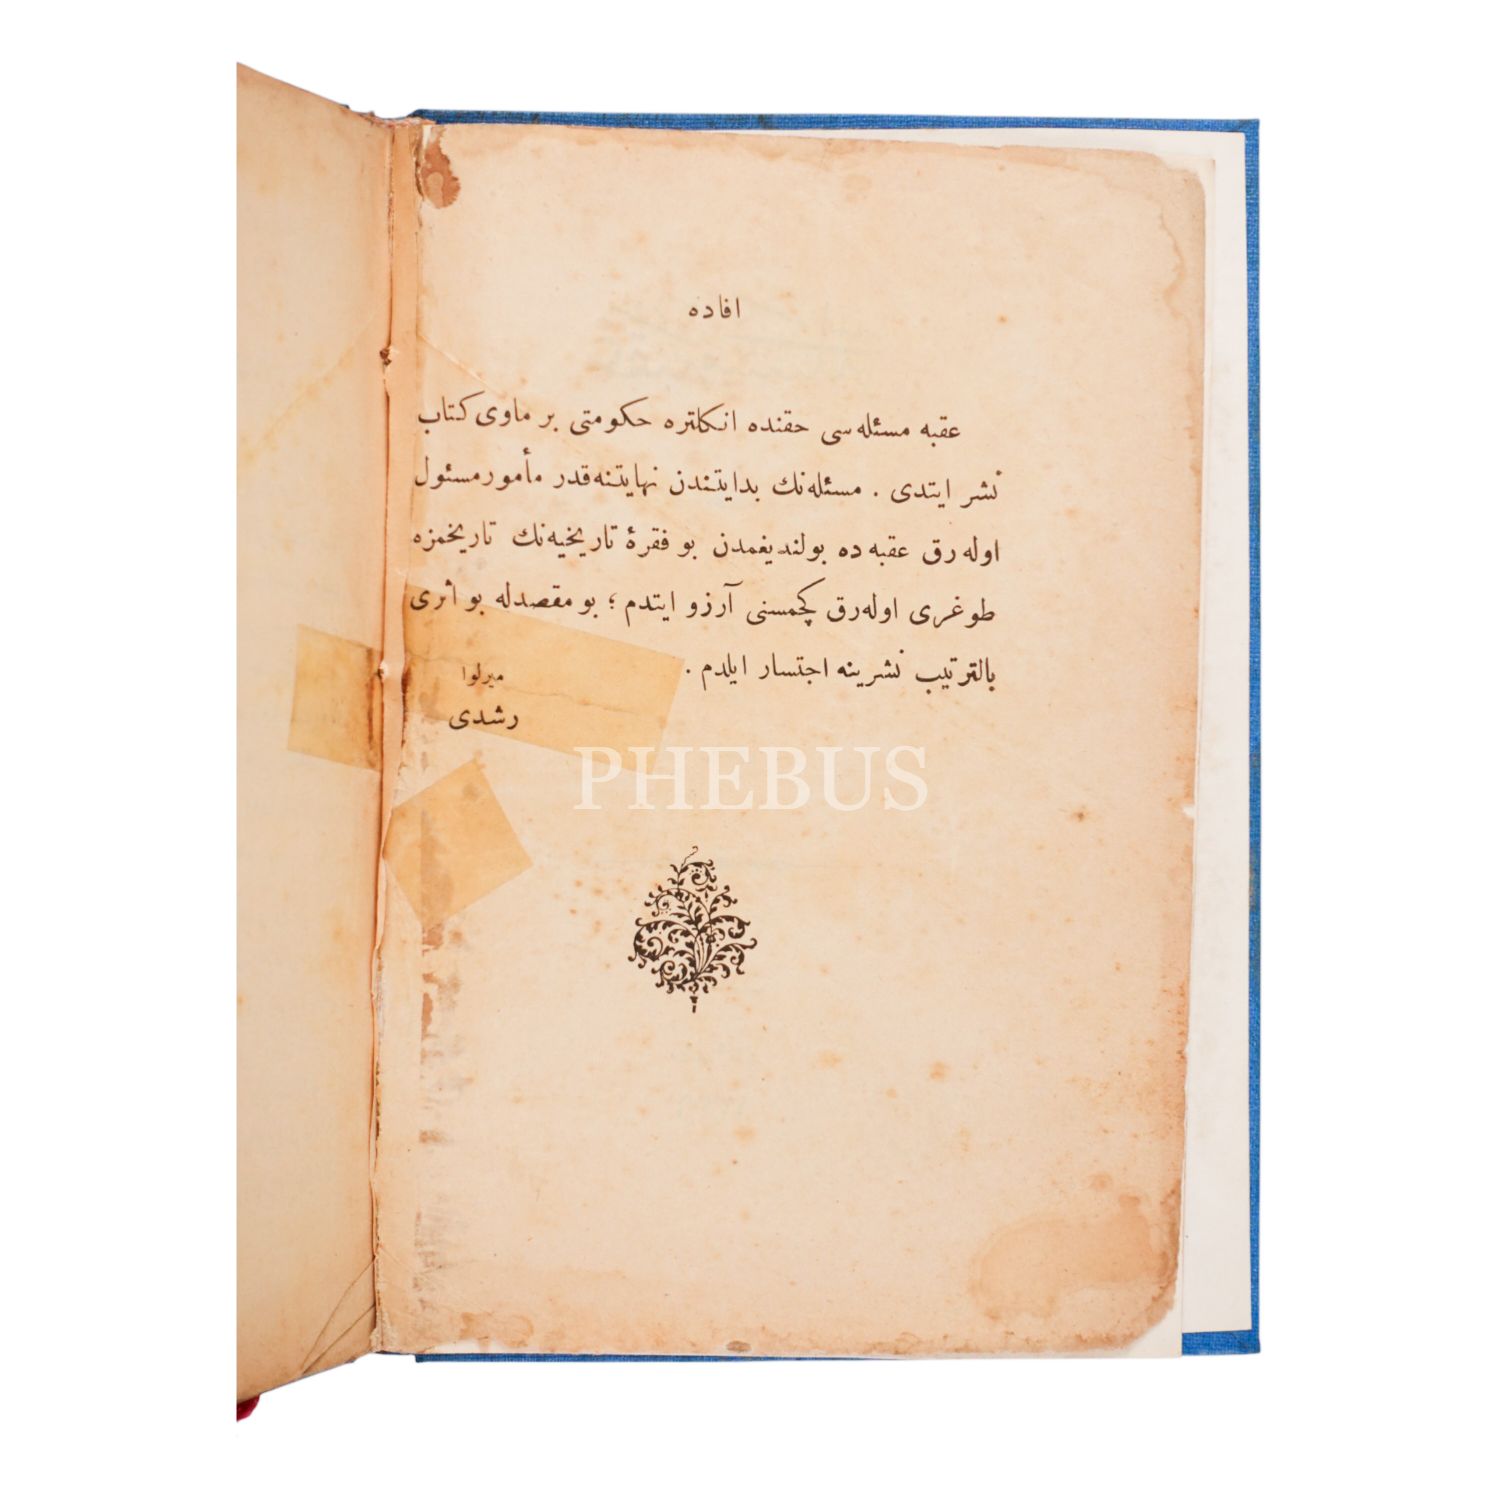 افاده
عقبه مسئله‌سی حقنده انكلتره حكومتی بر ماوی كتاب
نشر ایتدی . مسئله‌نك بدایتندن نهایتنه‌قدر مأمور مسئول
اوله‌رق عقبه‌ده بولندیغمدن بو فقرۀ تاریخیه‌نك تاریخمزه
طوغری اوله‌رق كچمسنی آرزو ایتدم ؛ بو مقصدله بو اثری
بالترتیب نشرینه اجتسار ایلدم .
میرلوا
رشدی
PHEBUS